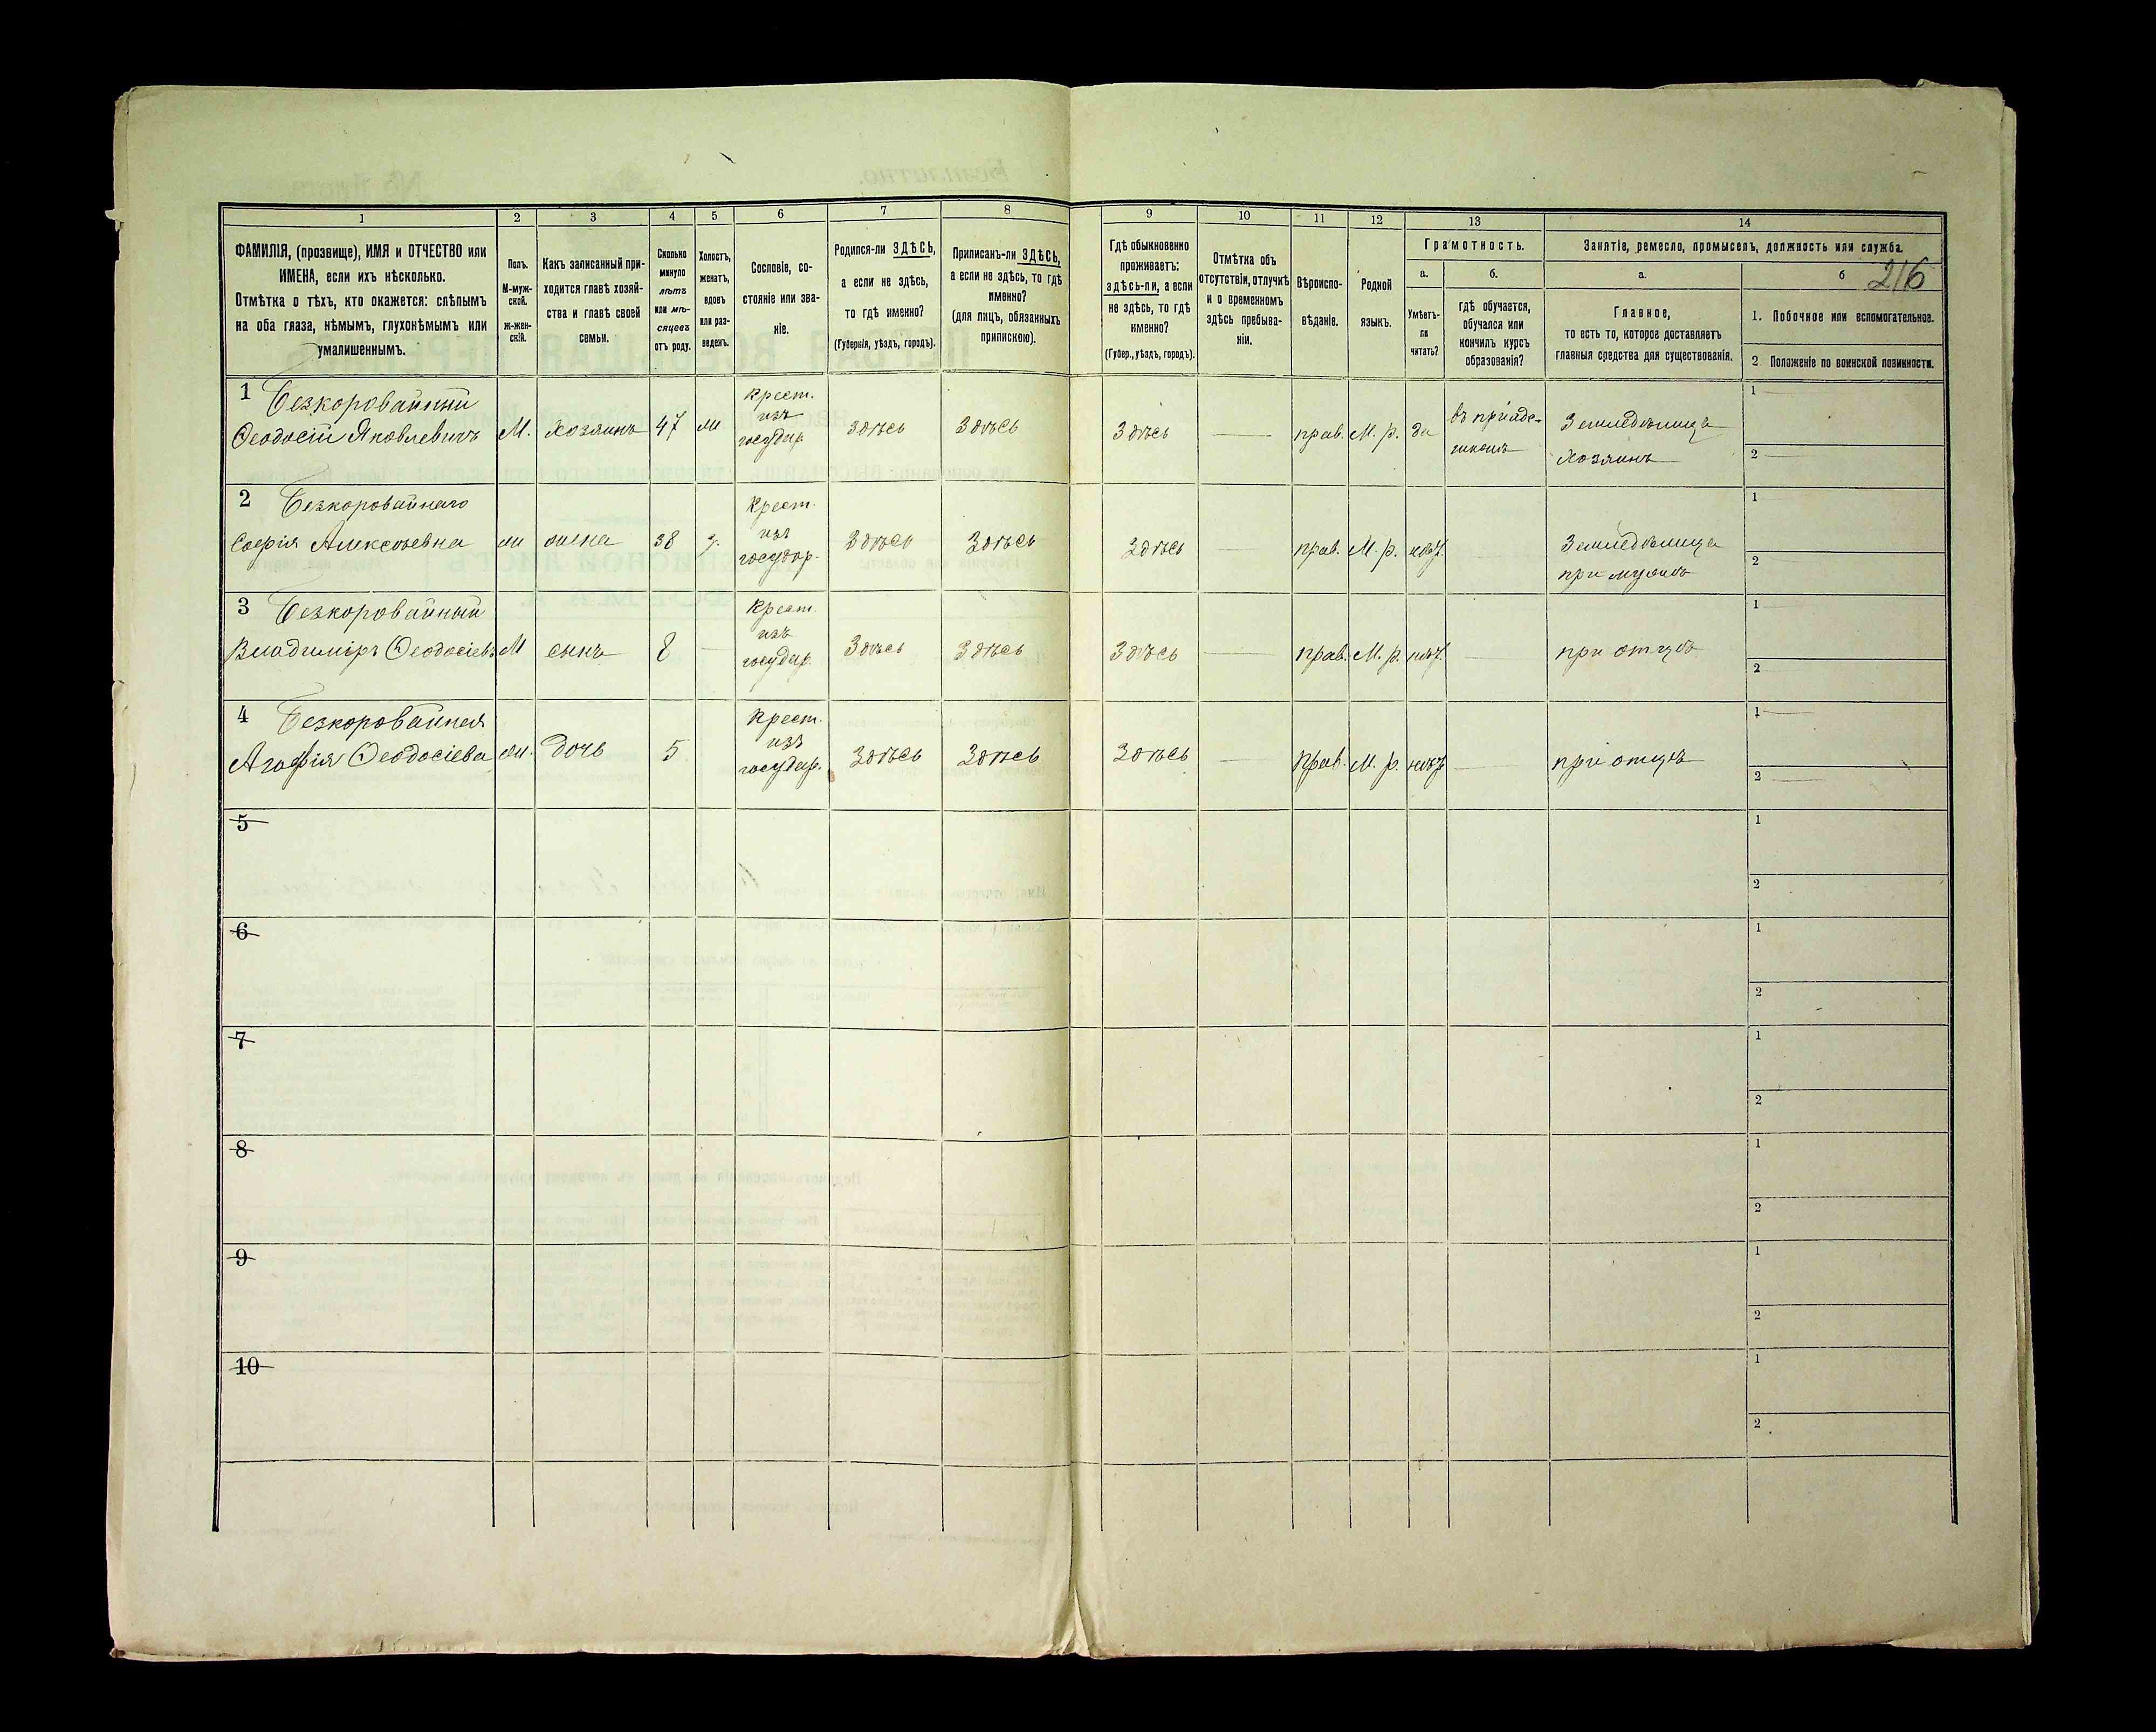 216
1
2
3
4
5
6
7
8
9
10
11
12
13
14
ФАМИЛІЯ, (прозвище), ИМЯ и ОТЧЕСТВО или
ИМЕНА, если ихъ нѣсколько.
Отмѣтка о тѣхъ, кто окажется: слѣпымъ
на оба глаза, нѣмымъ, глухонѣмымъ или
умалишеннымъ.
Полъ.
М-муж-
ской.
ж-жен-
скій.
Какъ записанный при-
ходится главѣ хозяй-
ства и главѣ своей
семьи.
Сколько
минуло
лѣтъ
или мѣ-
сяцевъ
отъ роду.
Холостъ,
женатъ,
вдовъ
или раз-
веденъ.
Сословіе, со-
стояніе или зва-
ніе.
Родился-ли ЗДѢСЬ,
а если не здѣсь,
то гдѣ именно?
(Губернія, уѣздъ, городъ).
Приписанъ-ли ЗДѢСЬ,
а если не здѣсь, то гдѣ
именно?
(для лицъ, обязанныхъ
припискою).
Гдѣ обыкновенно
проживаетъ:
здѣсь-ли, а если
не здѣсь, то гдѣ
именно?
(Губер., уѣздъ, городъ).
Отмѣтка объ
отсутствіи, отлучкѣ
и о временномъ
здѣсь пребыва-
ніи.
Вѣроиспо-
вѣданіе.
Родной
языкъ.
Грамотность.
а.
Умѣетъ-
ли
читать?
б.
гдѣ обучается,
обучался или
кончилъ курсъ
образованія?
Занятіе, ремесло, промыселъ, должность или служба.
а.
Главное,
то есть то, которое доставляетъ
главныя средства для существованія.
б
1. Побочное или вспомогательное.
2 Положеніе по воинской повинности.
1 Безкоровайный
Ѳеодосій Яковлевичъ
М.
хозяинъ
47
ж
крест.
изъ
государ.
здѣсь
здѣсь
здѣсь
прав.
М. р.
да
Хозяинъ
1
2
2 Безкоровайная
Софія Алексѣевна
ж
жена
38
з.
крест.
изъ
государ.
Здѣсь
Здѣсь
Здѣсь
прав.
М. р.
нѣт.
при мужѣ
1
2
3 Безкоровайный
Владиміръ Ѳеодосіевъ
М
сынъ
8
крест.
изъ
государ.
Здѣсь
Здѣсь
Здѣсь
прав.
М. р.
нѣт.
при отцѣ
1
2
4 Безкоровайная
Агафія Ѳеодосіева
ж.
дочь
5
крест.
изъ
государ.
Здѣсь
Здѣсь
Здѣсь
прав.
М. р.
нѣт
при отцѣ
1
2
5
1
2
6
1
2
7
1
2
8
1
2
9
1
2
10
1
2